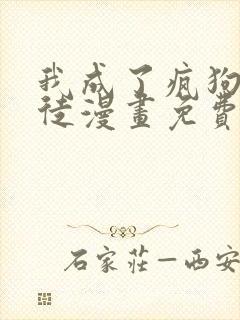 我成了疯狗
徒漫畫免費
石家莊—西安